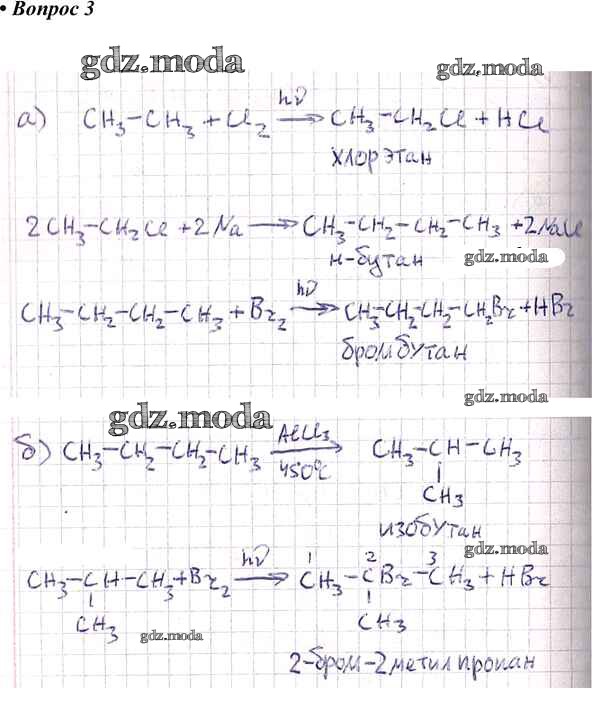 • Вопрос 3
gdz.moda
gdz.moda
а) CH₃-CH₃ + Cl₂ —hν→ CH₃-CH₂Cl + HCl
хлорэтан
2CH₃-CH₂Cl + 2Na → CH₃-CH₂-CH₂-CH₃ + 2NaCl
н-бутан gdz.moda
CH₃-CH₂-CH₂-CH₃ + Br₂ —hν→ CH₃-CH₂-CH₂-CH₂Br + HBr
бромбутан
gdz.moda
gdz.moda
б) CH₃-CH₂-CH₂-CH₃ —AlCl₃ 450°C→ CH₃-CH-CH₃
CH₃
изобутан
gdz.moda
1 2 3
CH₃-CH-CH₃ + Br₂ —hν→ CH₃-CBr-CH₃ + HBr
CH₃ CH₃
gdz.moda
2-бром-2метилпропан
gdz.moda